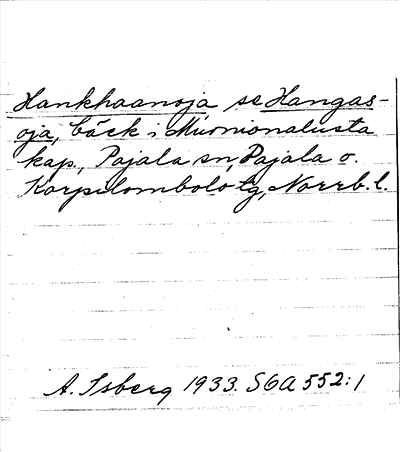 Hankhaanoja se Hangas-
oja, bäck i Muonionalusta
kap., Pajala sn, Pajala o.
Korpilombolo tg, Norrb. l.
A. Isberg 1933. SGA 552:1